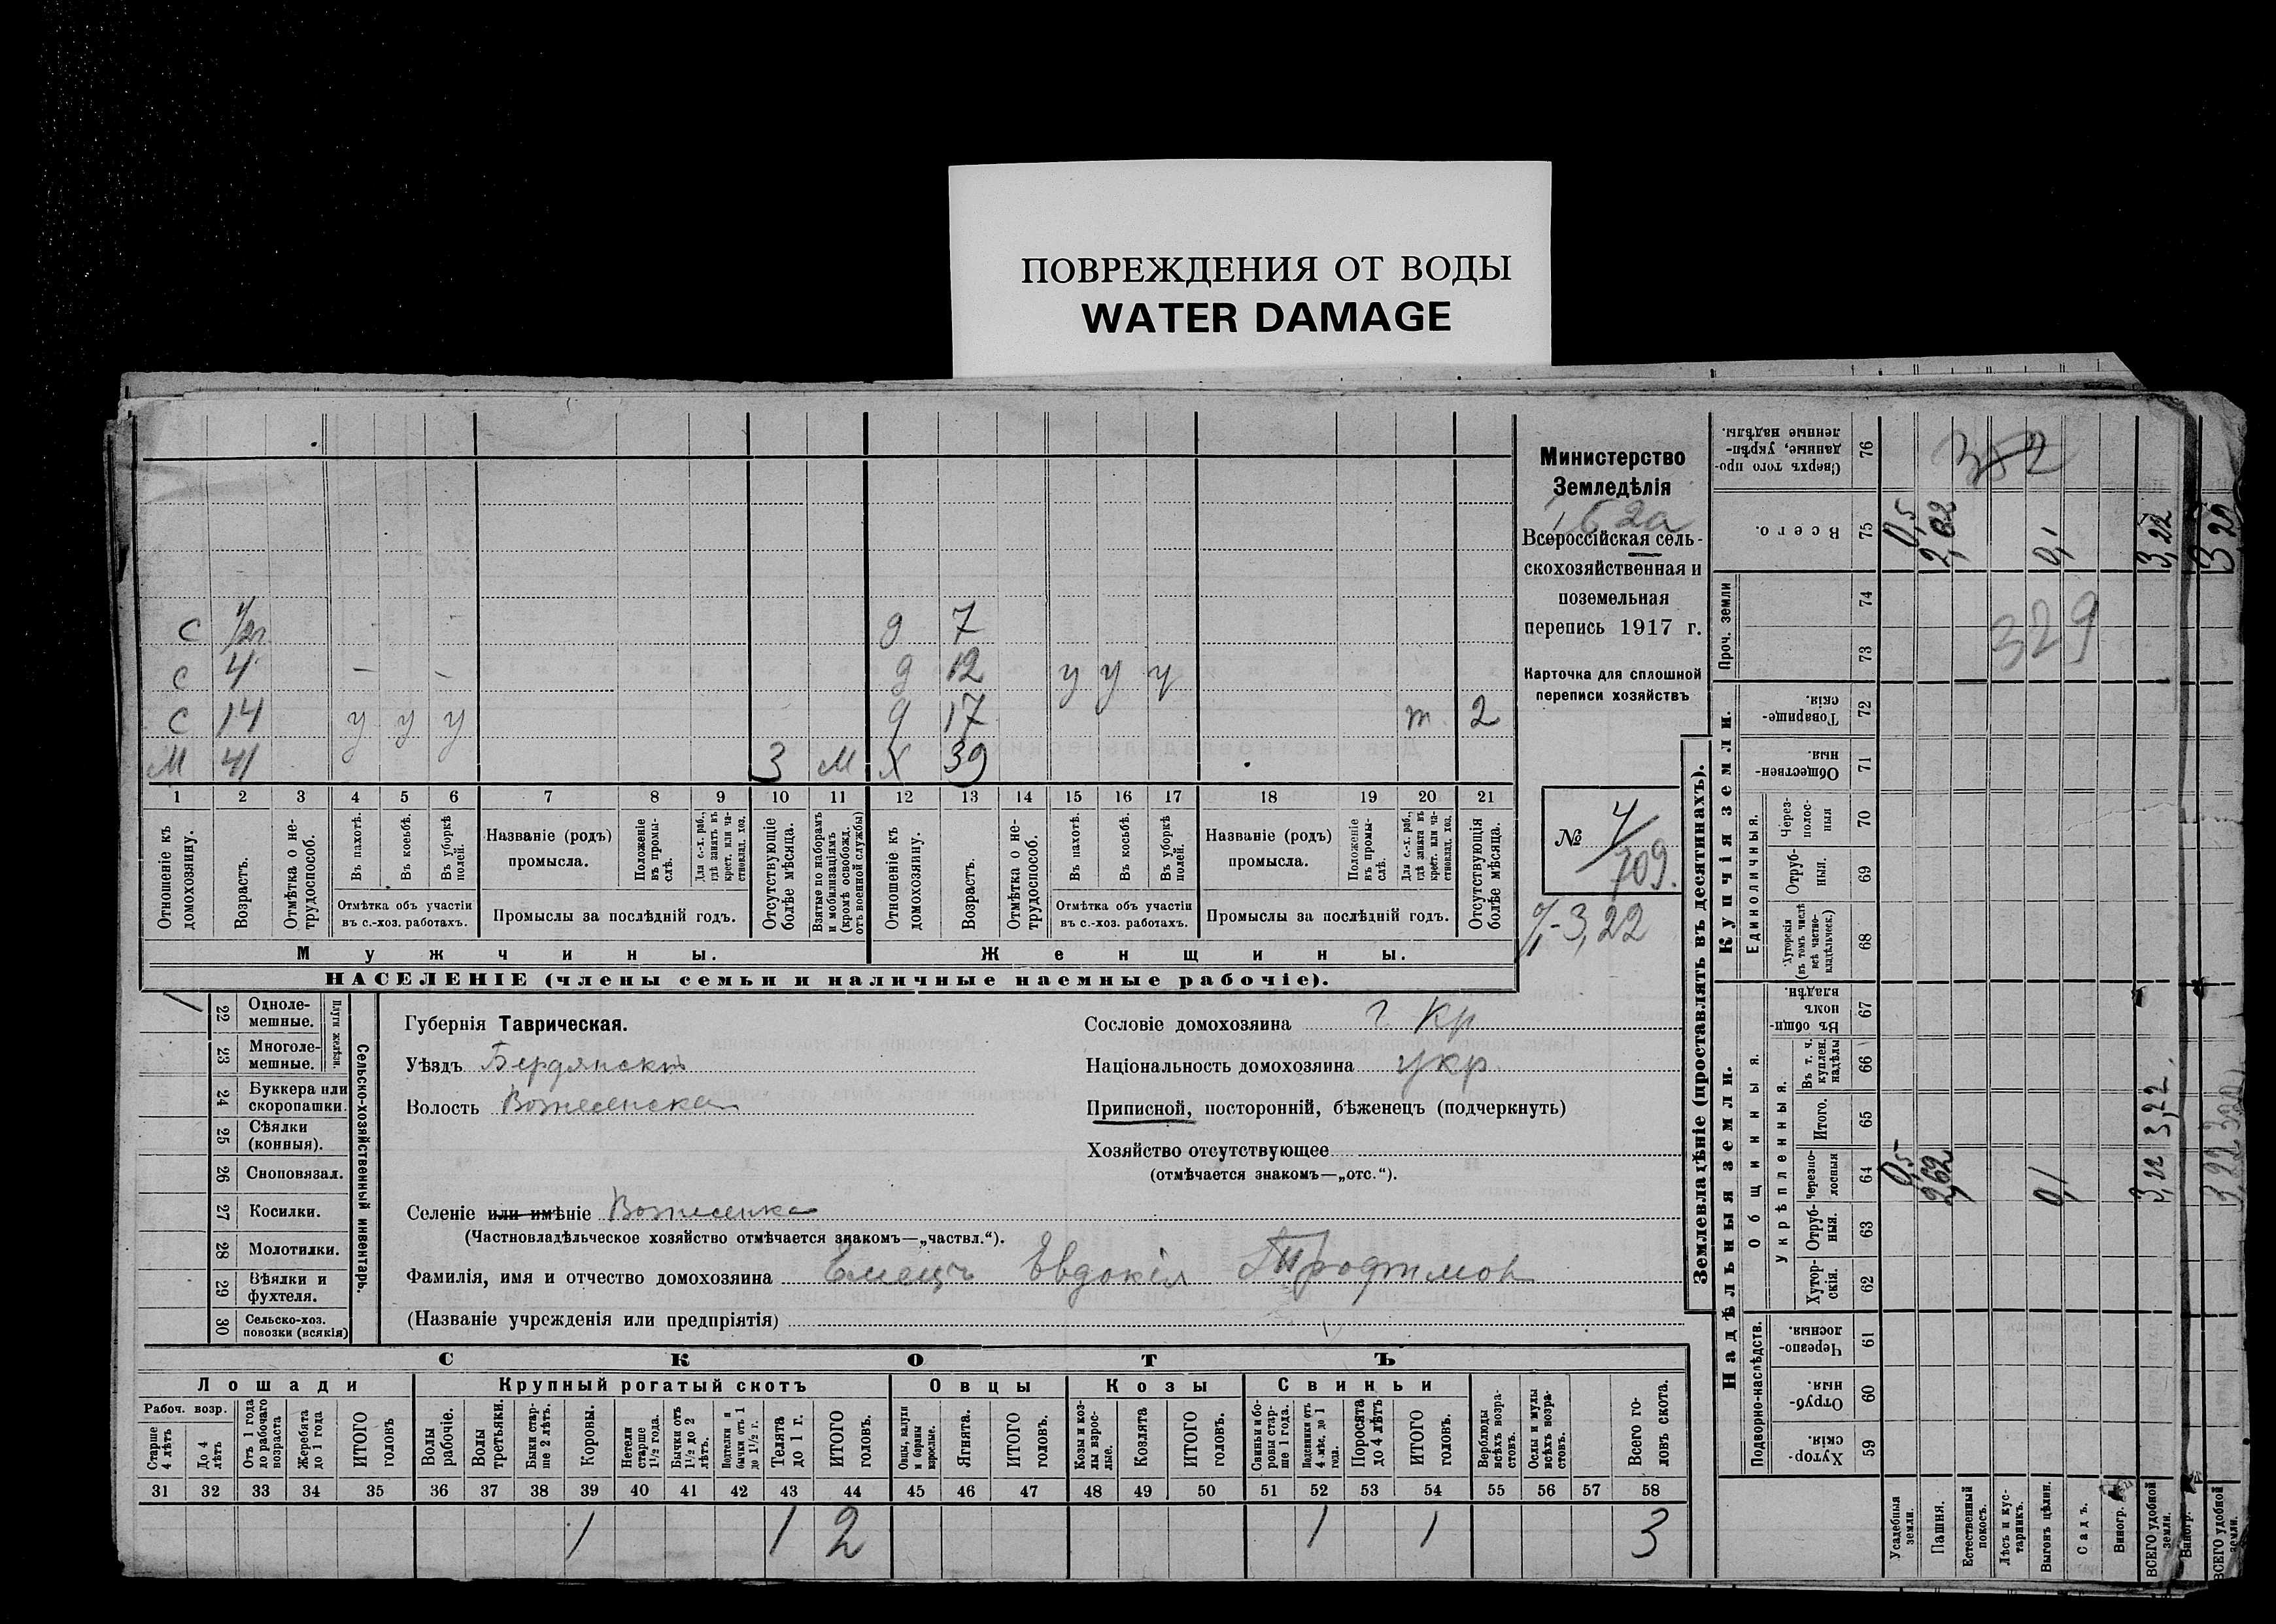 ПОВРЕЖДЕНИЯ ОТ ВОДЫ
WATER DAMAGE
Министерство
Земледѣлія
Всероссійская сель-
скохозяйственная и
поземельная
перепись 1917 г.
Карточка для сплошной
переписи хозяйствъ
№ 4/709.
3,22
с 1/2 д 7
с 4 – – д 12 у у у
с 14 у у у д 17 т. 2
м 41 3 м х 39
1 2 3 4 5 6 7 8 9 10 11 12 13 14 15 16 17 18 19 20 21
Отношеніе къ домохозяину.
Возрастъ.
Отмѣтка о не-трудоспособ.
Въ пахотѣ.
Въ косьбѣ.
Въ уборкѣ полей.
Отмѣтка объ участіи
въ с.-хоз. работахъ.
Названіе (родъ)
промысла.
Положеніе въ промы-слѣ.
Для с.-х. раб., гдѣ занятъ въ крест. или ча-ствовлад. хоз.
Промыслы за послѣдній годъ.
Отсутствующіе болѣе мѣсяца.
Взятые по наборамъ и мобилизаціямъ (кромѣ освобожд. отъ военной службы)
Отношеніе къ домохозяину.
Возрастъ.
Отмѣтка о не-трудоспособ.
Въ пахотѣ.
Въ косьбѣ.
Въ уборкѣ полей.
Отмѣтка объ участіи
въ с.-хоз. работахъ.
Названіе (родъ)
промысла.
Положеніе въ промы-слѣ.
Для с.-х. раб., гдѣ занята въ крест. или ча-ствовлад. хоз.
Промыслы за послѣдній годъ.
Отсутствующія болѣе мѣсяца.
Мужчины.
Женщины.
НАСЕЛЕНІЕ (члены семьи и наличные наемные рабочіе).
22 Одноле-мешные.
23 Многоле-мешные.
Плуги желѣзн.
24 Буккера или скоропашки.
25 Сѣялки (конныя).
26 Сноповязал.
27 Косилки.
28 Молотилки.
29 Вѣялки и фухтеля.
30 Сельско-хоз. повозки (всякія)
Сельско-хозяйственный инвентарь.
Губернія Таврическая.
Уѣздъ Бердянскъ
Волость Вознесенска
Селеніе или имѣніе Вознесенка
(Частновладѣльческое хозяйство отмѣчается знакомъ—„частвл.“).
Фамилія, имя и отчество домохозяина Емецъ Евдокія Трофимов
(Названіе учрежденія или предпріятія)
Сословіе домохозяина г. кр
Національность домохозяина укр.
Приписной, посторонній, бѣженецъ (подчеркнуть)
Хозяйство отсутствующее
(отмѣчается знакомъ—„отс.“).
СКОТЪ
Лошади
Крупный рогатый скотъ
Овцы
Козы
Свиньи
Рабоч. возр.
Старше 4 лѣтъ
До 4 лѣтъ
Отъ 1 года до рабочаго возраста
Жеребята до 1 года
ИТОГО головъ
Волы рабочіе.
Волы третьяки.
Быки стар-ше 2 лѣтъ.
Коровы.
Нетели старше 1½ года.
Бычки отъ 1½ до 2 лѣтъ.
Подтелки и бычки отъ 1 до 1½ г.
Телята до 1 г.
ИТОГО головъ.
Овцы, валухи и бараны взрослые.
Ягнята.
ИТОГО головъ.
Козы и коз-лы взрос-лые.
Козлята
ИТОГО головъ.
Свиньи и бо-ровы стар-ше 1 года.
Подсвинки отъ 4 мѣс. до 1 года.
Поросята до 4 лѣтъ
ИТОГО головъ.
Верблюды всѣхъ возра-стовъ.
Ослы и мулы всѣхъ возра-стовъ.
Всего го-ловъ скота.
31 32 33 34 35 36 37 38 39 40 41 42 43 44 45 46 47 48 49 50 51 52 53 54 55 56 57 58
1 1 2 1 1 3
Землевладѣніе (проставлять въ десятинахъ).
Надѣльныя земли.
Купчія земли.
Проч. земли
Подворно-наслѣдств.
Общинныя.
Укрѣпленныя.
Единоличныя.
59 Хутор-скія.
60 Отруб-ныя.
61 Черезпо-лосныя.
62 Хутор-скія.
63 Отруб-ныя.
64 Черезпо-лосныя
65 Итого.
66 Въ т. ч. куплен. надѣлы
67 Въ общи-номъ владѣн.
68 Хуторскія (въ томъ числѣ всѣ частно-владѣльческ.)
69 Отруб-ныя.
70 Через-полос-ныя
71 Обществен-ныя.
72 Товарище-скія.
73
74
75 Всего.
76 Сверхъ того про-данные, укрѣп-ленные надѣлы.
Усадебныя земли.
Пашня.
Естественный покосъ.
Лѣсъ и кус-тарникъ.
Выгонъ цѣлин.
Садъ.
Виногр.
ВСЕГО удобной земли.
Виногр.
ВСЕГО удобной земли.
0,5
2,62
0,1
3,22 3,22
0,5
0,1
3,22
329